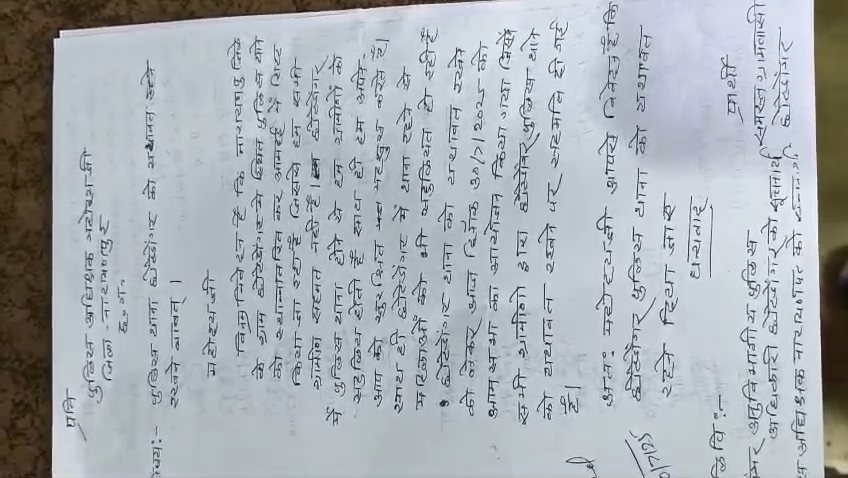 प्रति
पुलिस अधिक्षक महोदय जी
जिला - नारायणपुर
छ. ग.
विषय:- पुलिस थाना छोटेडोंगर को यथावत रहने
रखने बाबत्।
महोदय जी
विनम्र निवेदन है कि नारायणपुर जिले
के ग्राम छोटेडोंगर में स्थित पुलिस थाने
को स्थानान्तरित कर आमदई में शिफ्ट
किया जा रहा है जिससे हम सभी
ग्रामीण सहमत नहीं है। छोटेडोंगर
में पुलिस थाना होने से हम ग्रामीणों को
सहुलियत होती है साथ ही हम अपने
आप को सुरक्षित महसुस करते हैं।
साथ ही छोटेडोंगर में थाना रहने से
महिलाओं को भी सहुलियत हो रही है
छोटेडोंगर थाना को यथावत रखने
को लेकर आज दिनांक 30/7/2025 को
आमसभा का आयोजन किया गया जिसमें
सभी ग्रामीणों द्वारा छोटेडोंगर पुलिस थाने
को यथावत रखने पर सहमति हो गई
है।
अतः महोदय जी आपसे निवेदन है कि
छोटेडोंगर पुलिस थाना को यथावत
रहने दिया जाए
धन्यवाद
प्रार्थी
समस्त ग्रामवासी
छोटेडोंगर
0/7/25
लिपि:-
अनुविभागीय पुलिस
अधिकारी छोटेडोंगर को सूचनार्थ
अधिक्षक नारायणपुर को